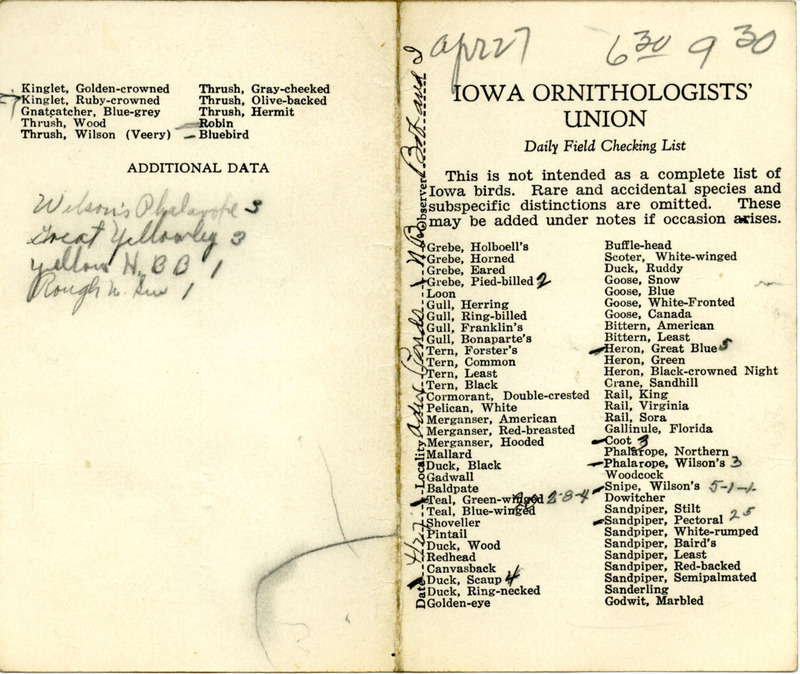 Kinglet, Golden-crowned
Kinglet, Ruby-crowned
Gnatcatcher, Blue-grey
Thrush, Wood
Thrush, Wilson (Veery)
Thrush, Gray-cheeked
Thrush, Olive-backed
Thrush, Hermit
Robin
Bluebird
ADDITIONAL DATA
Wilson's Phalarope 3
Great Yellowleg 3
Yellow H. B B 1
Rough W. 1
Apr 27 6 30 9 30
IOWA ORNITHOLOGISTS'
UNION
Daily Field Checking List
This is not intended as a complete list of
Iowa birds. Rare and accidental species and
subspecific distinctions are omitted. These
may be added under notes if occasion arises.
Date Locality Ponds Observer and I
Grebe, Holboell's
Grebe, Horned
Grebe, Eared
Grebe, Pied-billed 2
Loon
Gull, Herring
Gull, Ring-billed
Gull, Franklin's
Gull, Bonaparte's
Tern, Forster's
Tern, Common
Tern, Least
Tern, Black
Cormorant, Double-crested
Pelican, White
Merganser, American
Merganser, Red-breasted
Merganser, Hooded
Mallard
Duck, Black
Gadwall
Baldpate
Teal, Green-winged 2-8-4
Teal, Blue-winged
Shoveller
Pintail
Duck, Wood
Redhead
Canvasback
Duck, Scaup 4
Duck, Ring-necked
Golden-eye
Buffle-head
Scoter, White-winged
Duck, Ruddy
Goose, Snow
Goose, Blue
Goose, White-Fronted
Goose, Canada
Bittern, American
Bittern, Least
Heron, Great Blue 5
Heron, Green
Heron, Black-crowned Night
Crane, Sandhill
Rail, King
Rail, Virginia
Rail, Sora
Gallinule, Florida
Coot 3
Phalarope, Northern
Phalarope, Wilson's 3
Woodcock
Snipe, Wilson's 5-1-1
Dowitcher
Sandpiper, Stilt
Sandpiper, Pectoral 25
Sandpiper, White-rumped
Sandpiper, Baird's
Sandpiper, Least
Sandpiper, Red-backed
Sandpiper, Semipalmated
Sanderling
Godwit, Marbled